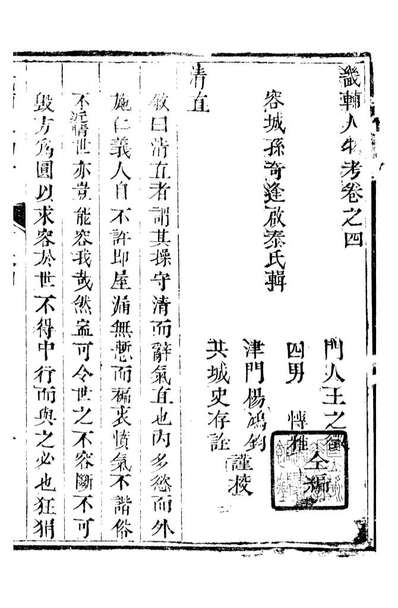 畿輔人物考卷之四
容城孫奇逢啟泰氏輯
門人王之徵
四男 博雅 仝編
津門楊鴻鈞
共城史存註 謹挍
清直
敘曰清直者謂其操守清而辭氣直也內多慾而外
施仁義人自不許即屋漏無慙而褊衷憤氣不諧俗
不近情世亦豈能容我哉然寧可令世之不容斷不可
毀方為圓以求容於世不得中行而與之必也狂狷